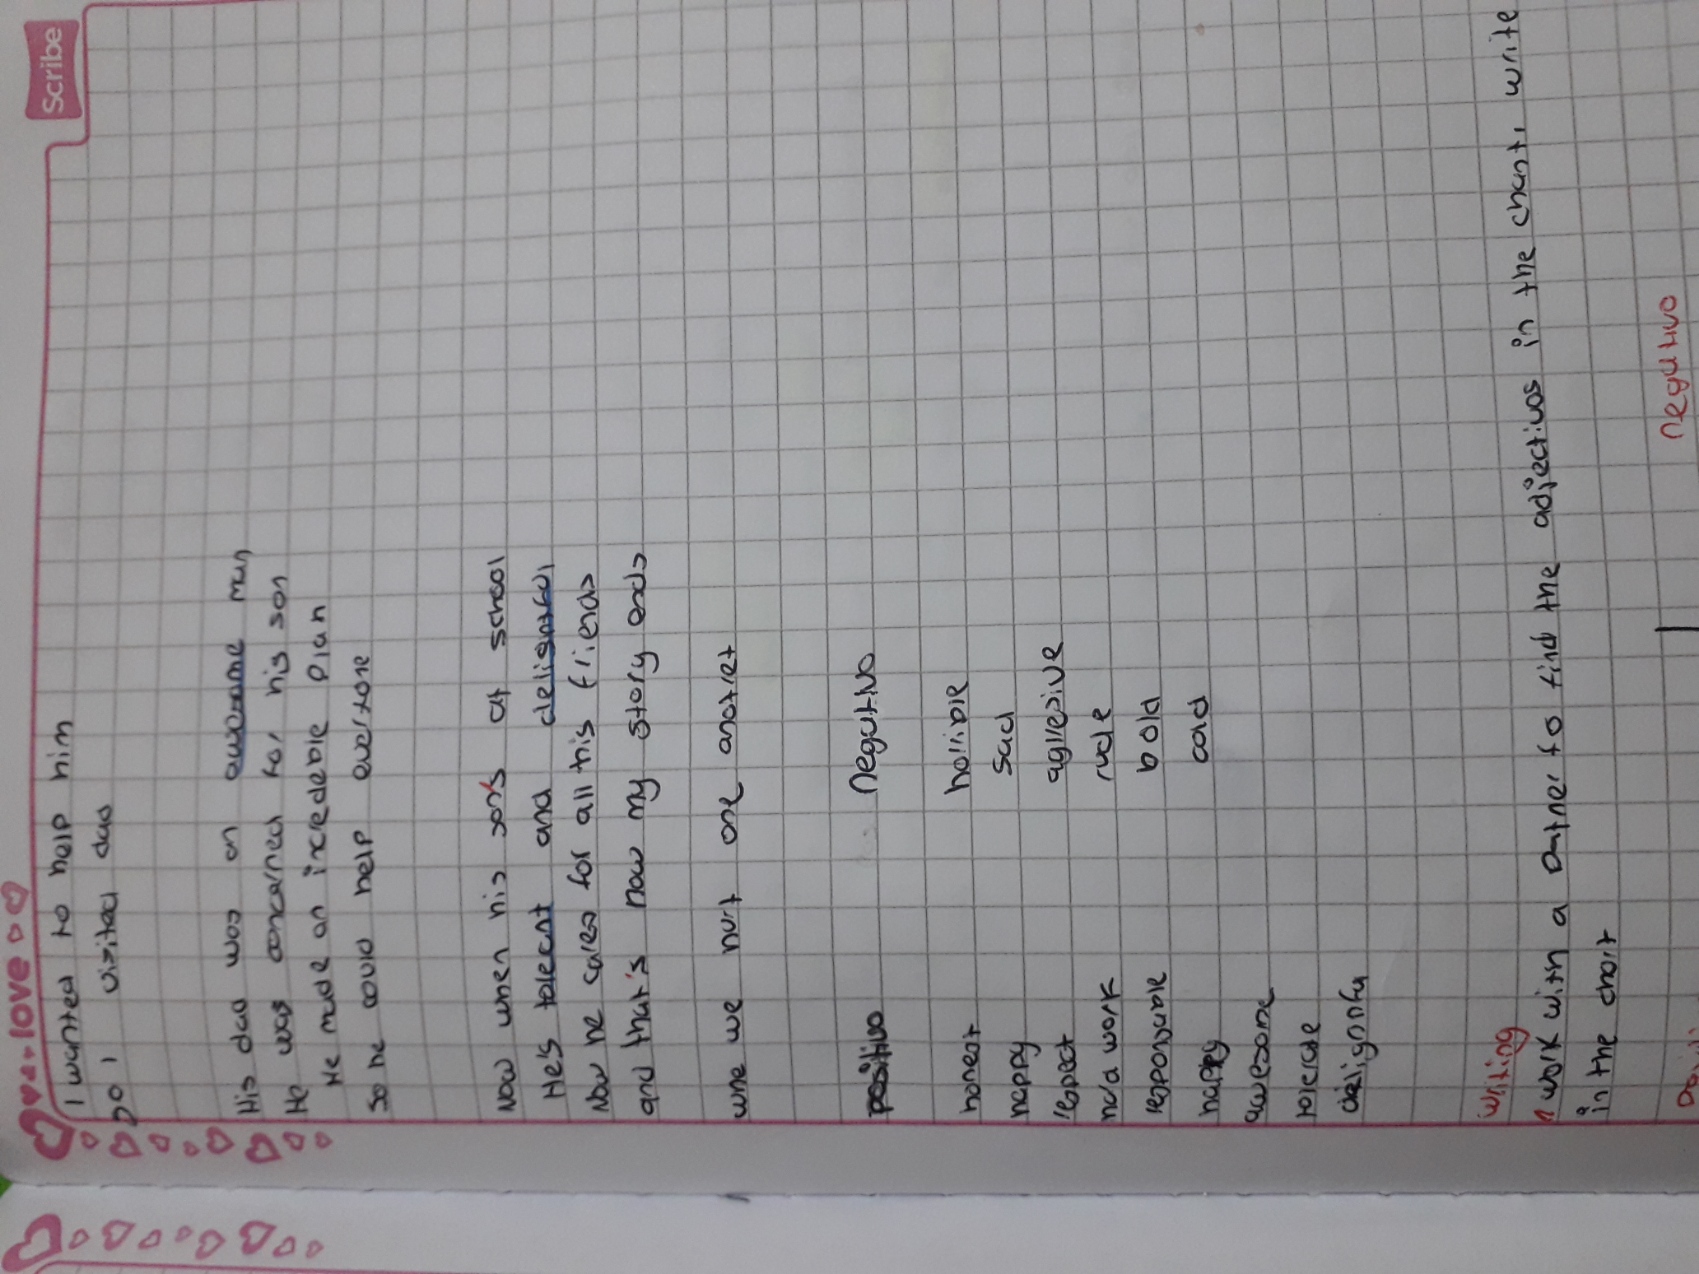 love
Scribe
I wanted to help him
So I visited dad
His dad was an awesome man
He was concerned for his son
He made an incredeble plan
So he could help everyone
Now when his son's at school
He's tolerant and delightful
Now he cares for all his friends
and that's now my story ends
we hurt one another
positivo negativo
honest horrible
happy sad
respect agressive
hard work rude
responsable bold
happy cold
awesome
tolerate
delightful
writing
1 work with a partner to find the adjectivos in the chant, write
in the chart
negativo